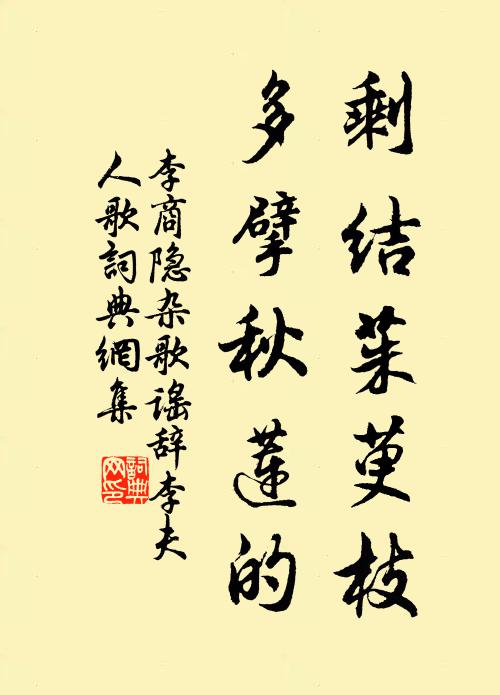 剩结茱萸枝
多擘秋莲的
李商隐杂歌谣辞李夫
人歌詞典網集
詞典网印